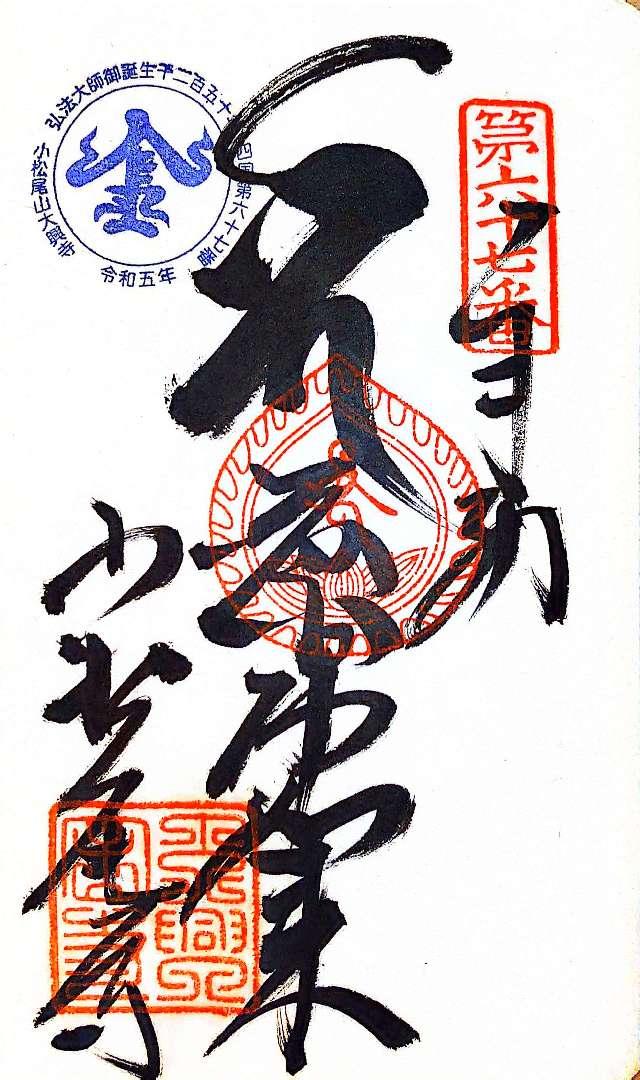 第六十七番
奉納
薬師如来
小松尾寺
弘法大師御誕生千二百五十年
四国第六十七番
小松尾山大興寺
金
令和五年